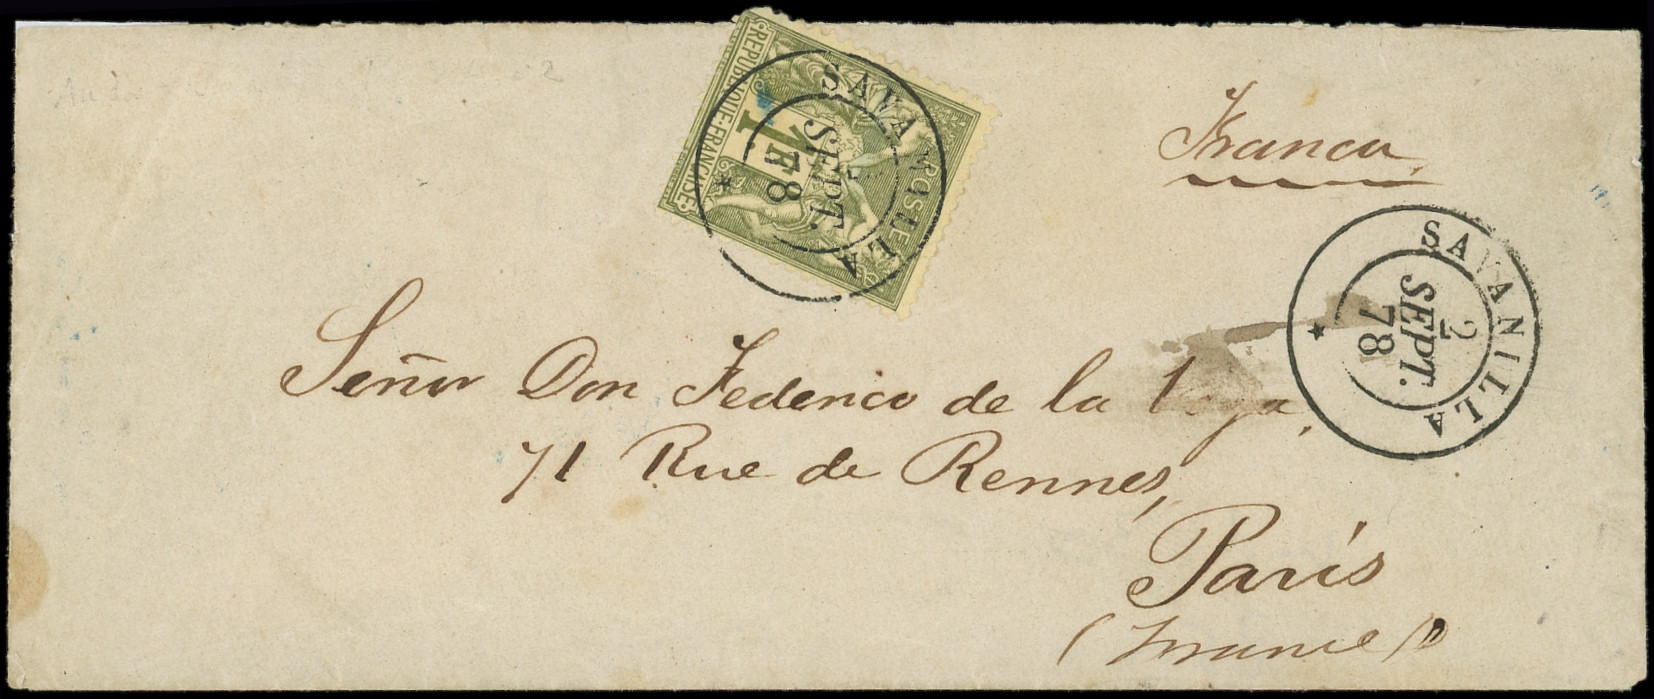 REPUBLIQUE·FRANÇAISE
1 F
POSTES
SAVANILLA
SEPT.
78
Franca
SAVANILLA
2
SEPT.
78
Señor Don Federico de la Vega,
71 Rue de Rennes,
París
(France)